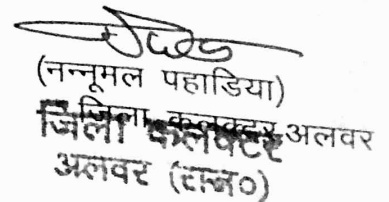 (नन्नूमल पहाडिया)
जिला कलक्टर, अलवर
जिला कलक्टर
अलवर (राज०)